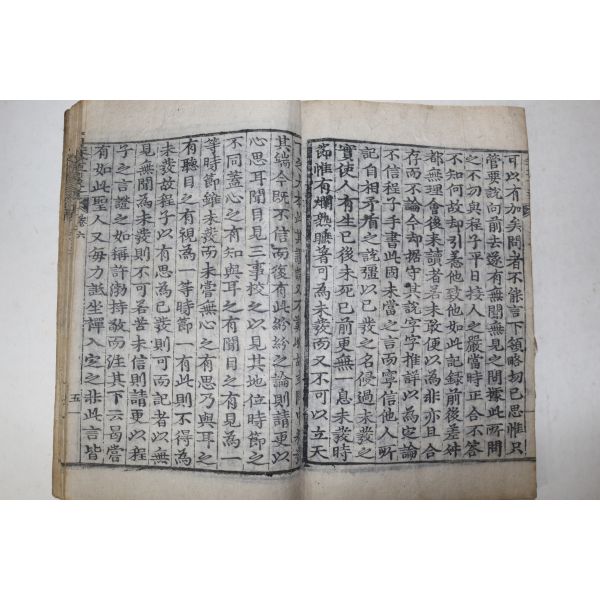 可以有加矣問者不能言下領略切己思惟只
管要說向前去遂有無聞無見之問據此所問
之不切與程子平日接人之嚴當時正合不答
不知何故却引惹他致他如此記錄前後差舛
都無理會後來讀者若未敢便以爲非亦且合
存而不論今却據守其說字字推詳以爲定論
不信程子手書此固未當之言而寧信他人所
記自相矛盾之說彊以已發之名侵過未發之
實使人有生已後未死已前更無一息未發時
節惟有爛熟睡著可爲未發而又不可以立天
其端今旣不信而復有此紛紛之論則請更以
心思耳聞目見三事校之以見其地位時節之
不同蓋心之有知與耳之有聞目之有見爲一
等時節雖未發而未嘗無心之有思乃與耳之
有聽目之有視爲一等時節一有此則不得爲
未發故程子以有思爲已發則可而記者以無
見無聞爲未發則不可若苦未信則請更以程
子之言證之如稱許渤持敬而注其下云曷嘗
有如此聖人又每力詆坐禪入定之非此言皆
卷六
五